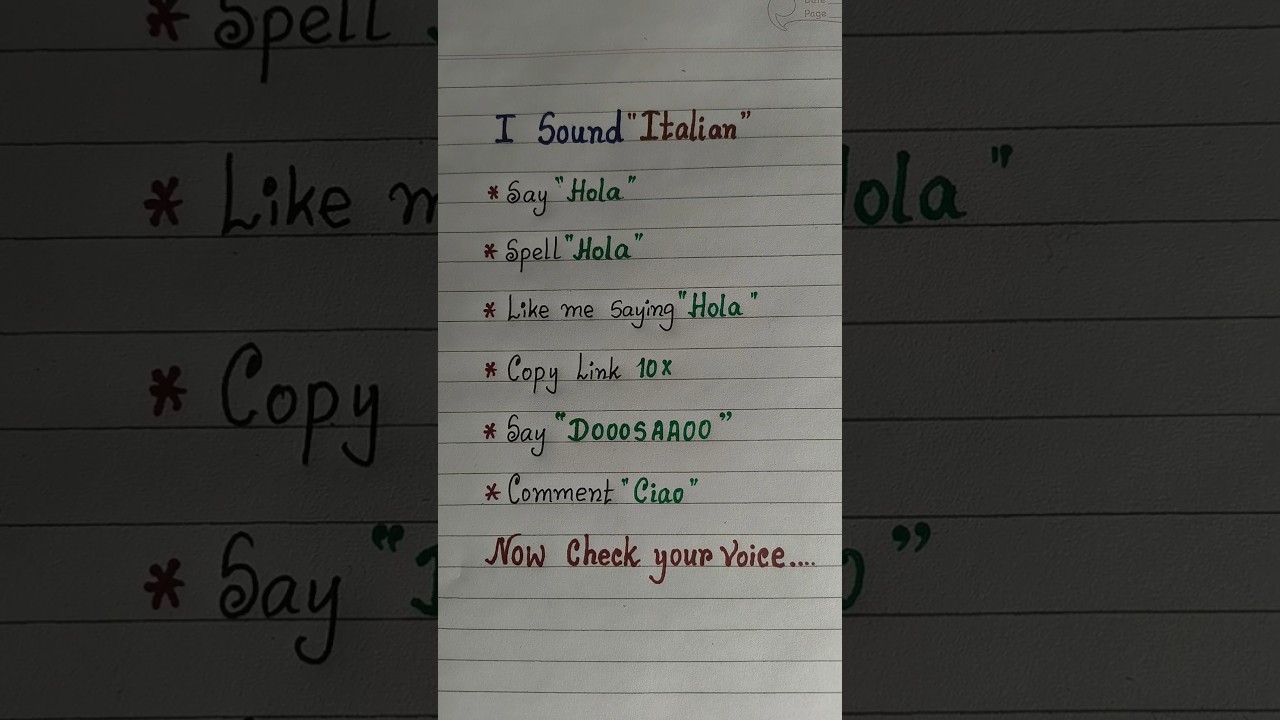 Page
I Sound "Italian"
* Say "Hola"
* Spell "Hola"
* Like me Saying "Hola"
* Copy Link 10x
* Say "DOOOSAAOO"
* Comment "Ciao"
Now Check your Voice....